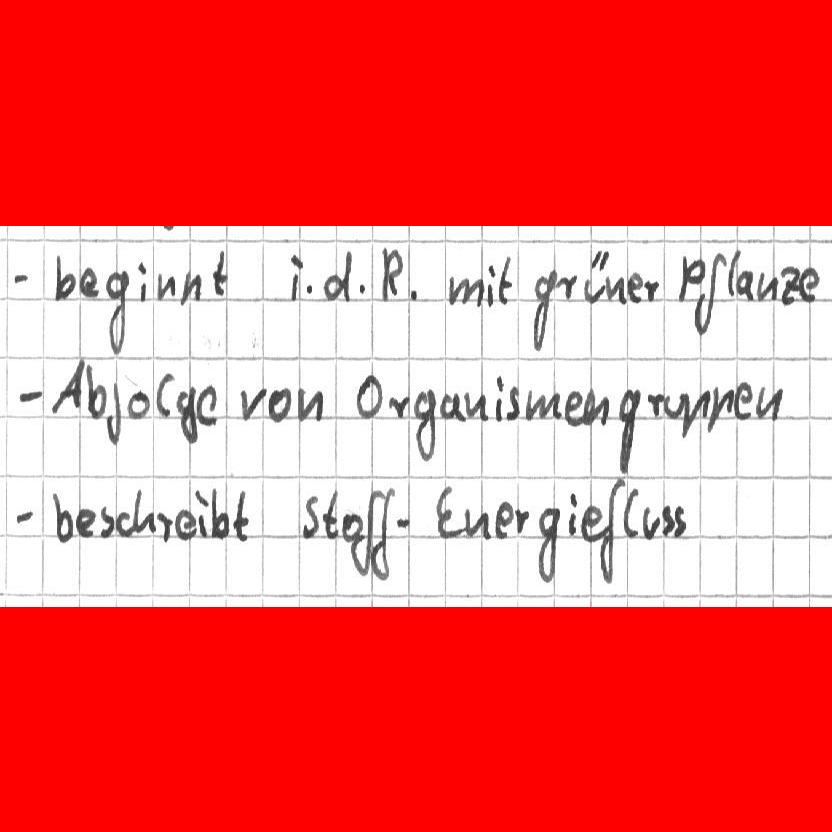 - beginnt i.d.R. mit grüner Pflanze
- Abfolge von Organismengruppen
- beschreibt Stoff- Energiefluss